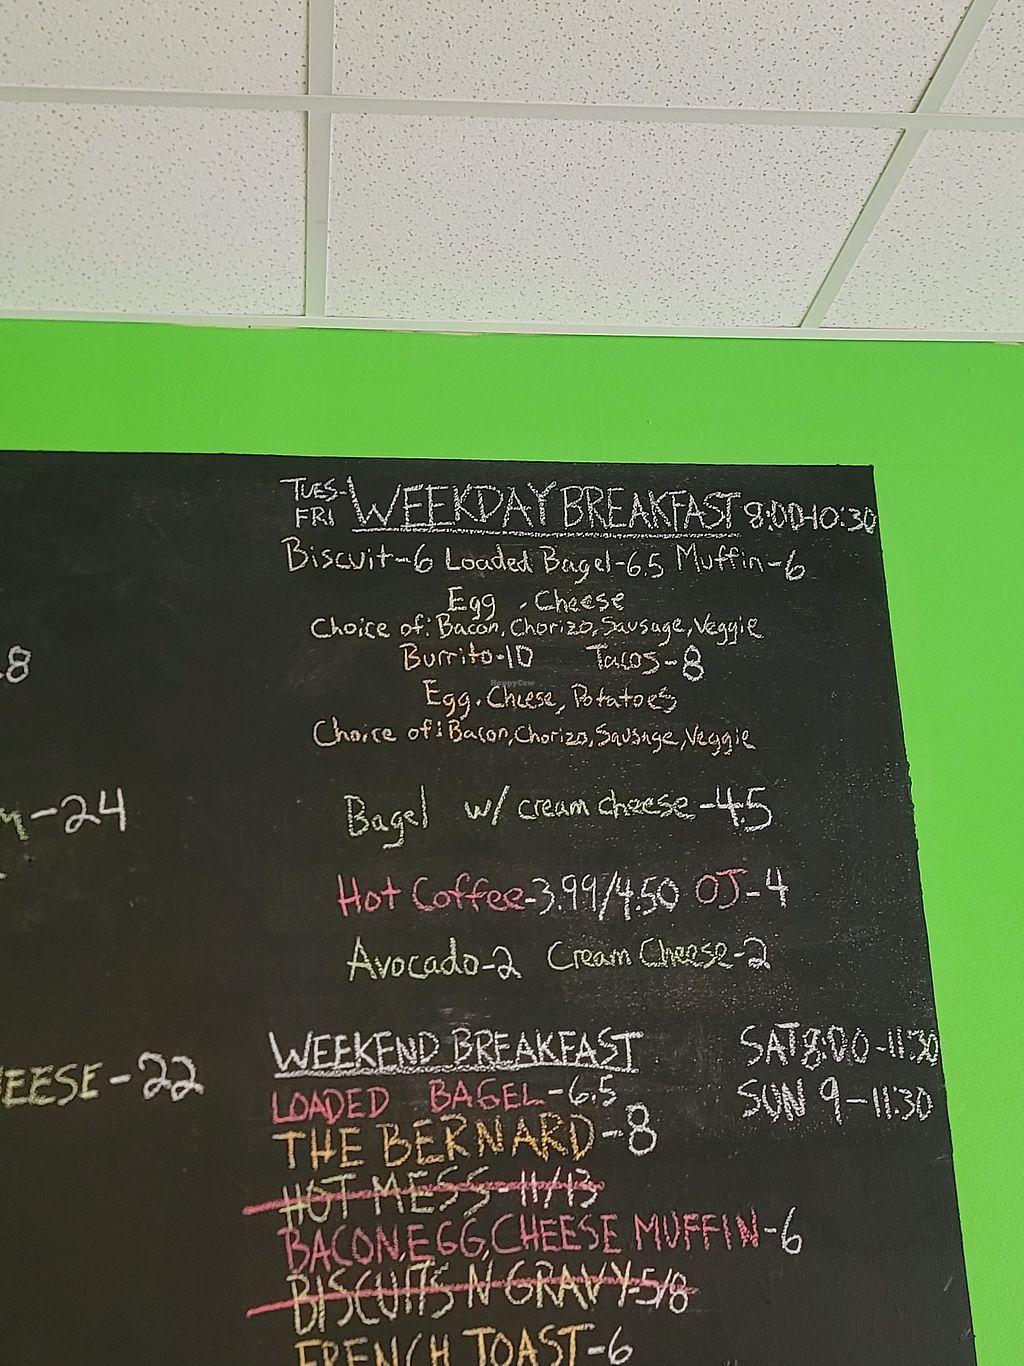 TUES-
FRI
WEEKDAY BREAKFAST 8:00-10:30
Biscuit-6 Loaded Bagel-6.5 Muffin-6
Egg, Cheese
Choice of: Bacon, Chorizo, Sausage, Veggie
-8
Burrito-10 Tacos-8
HappyCow
Egg, Cheese, Potatoes
Choice of: Bacon, Chorizo, Sausage, Veggie
-24
Bagel w/ cream cheese -4.5
Hot Coffee-3.99/4.50 OJ-4
Avocado-2 Cream Cheese-2
WEEKEND BREAKFAST SAT 8:00-11:30
EESE-22
LOADED BAGEL-6.5 SUN 9-11:30
THE BERNARD-8
HOT MESS-11/13
BACON,EGG,CHEESE MUFFIN-6
BISCUITS N GRAVY-5/8
FRENCH TOAST-6